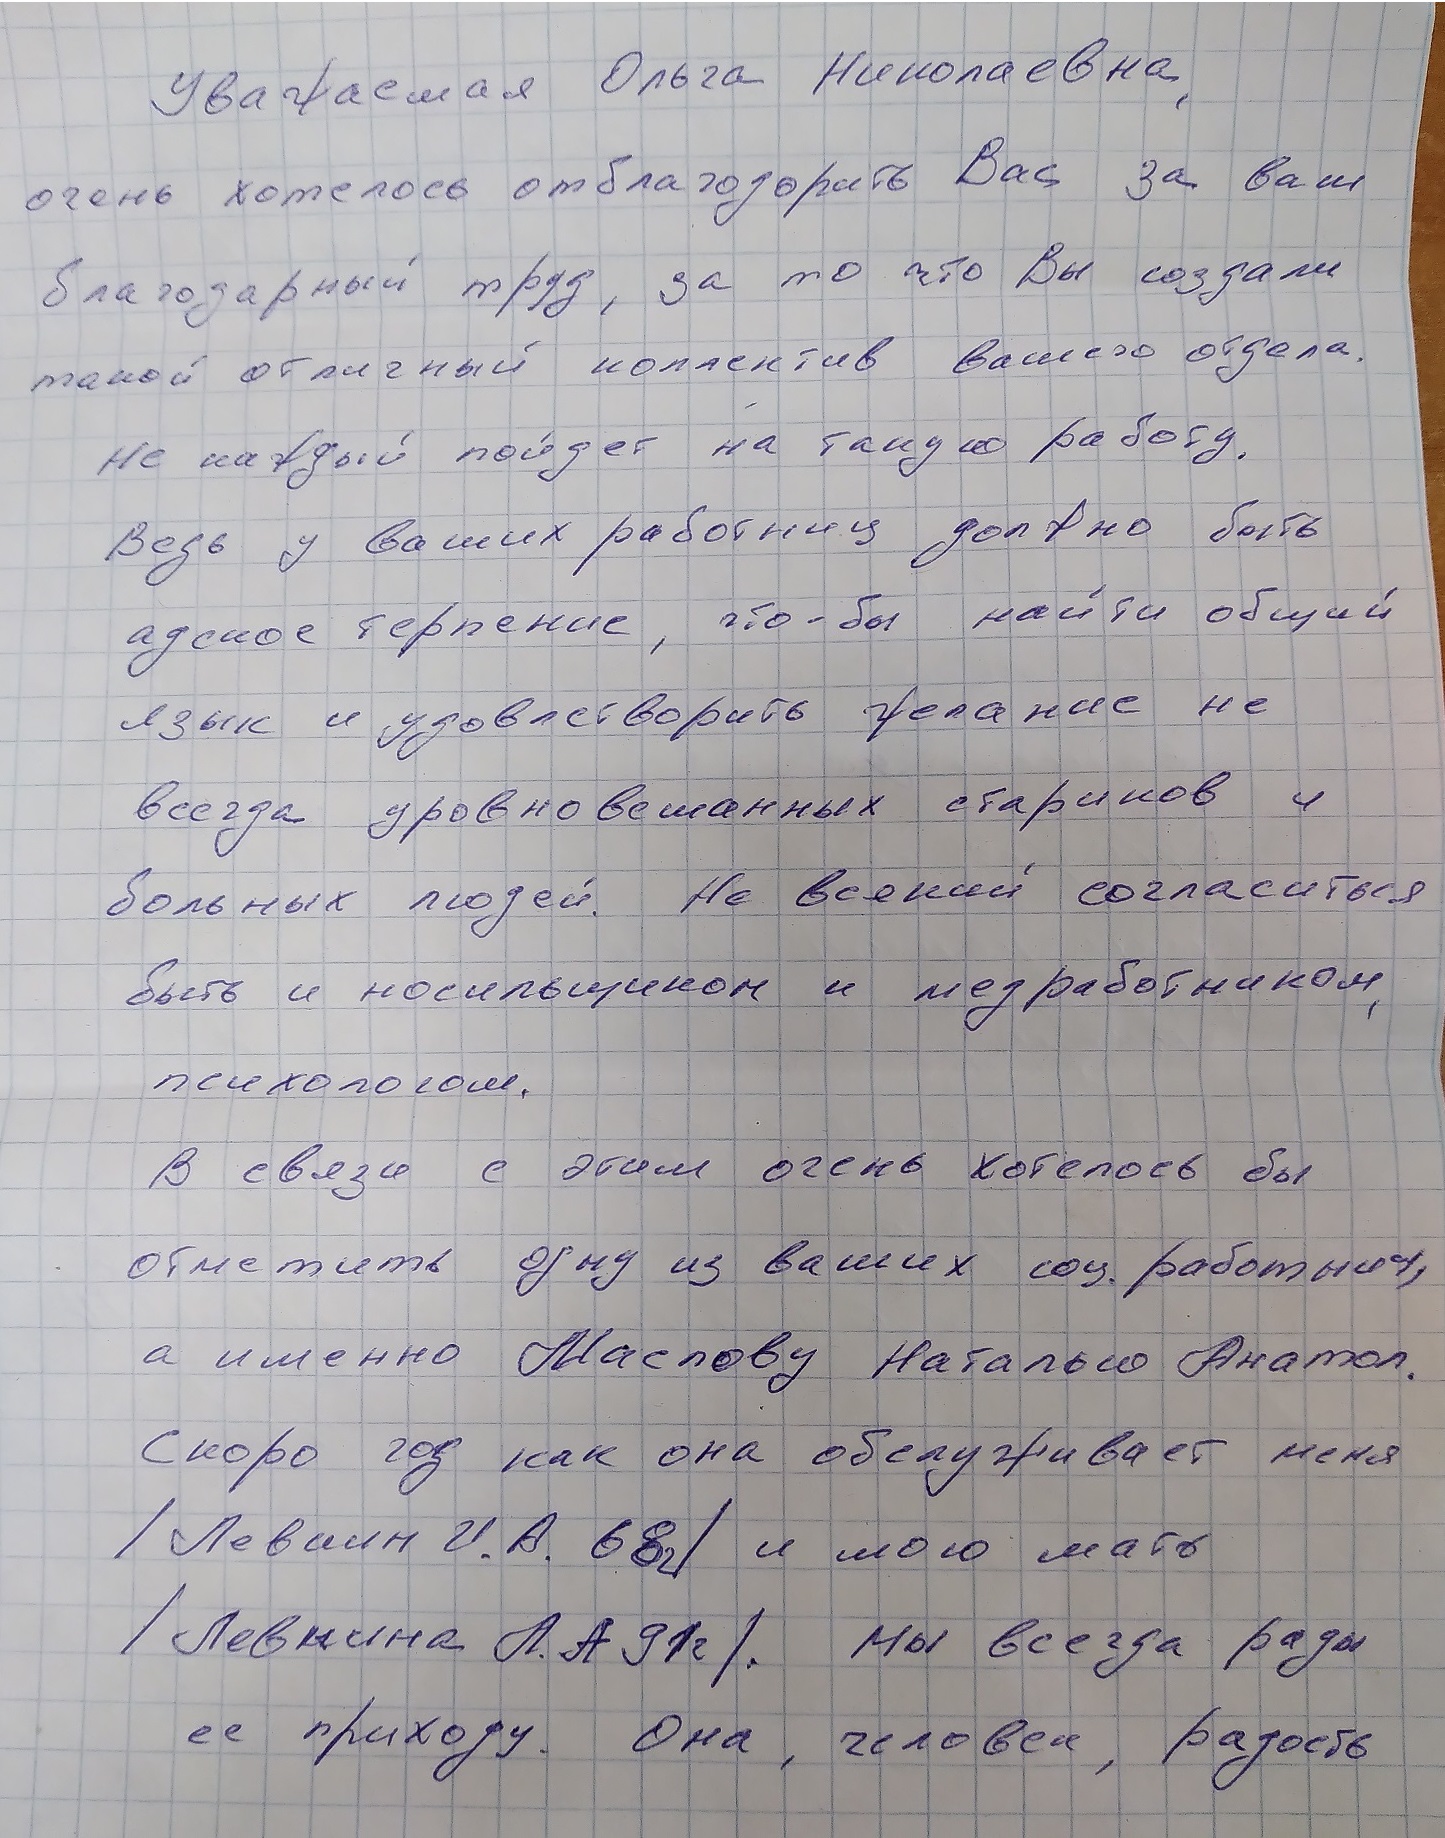 Уважаемая Ольга Николаевна,
очень хотелось отблагодорить Вас за ваш
благодарный труд, за то что Вы создали
такой отличный коллектив вашего отдела.
Не каждый пойдет на такую работу.
Ведь у ваших работниц должно быть
адское терпение, что-бы найти общий
язык и удовлетворить желание не
всегда уровновешанных стариков и
больных людей. Не всякий согласиться
быть и носильщиком и медработником,
психологом.
В связи с этим очень хотелось бы
отметить одну из ваших соц. работниц,
а именно Маслову Наталью Анатол.
Скоро год как она обслуживает меня
/ И.А. 68г/ и мою мать
/ Л.А 91г/. Мы всегда рады
ее приходу. Она, человек, радость